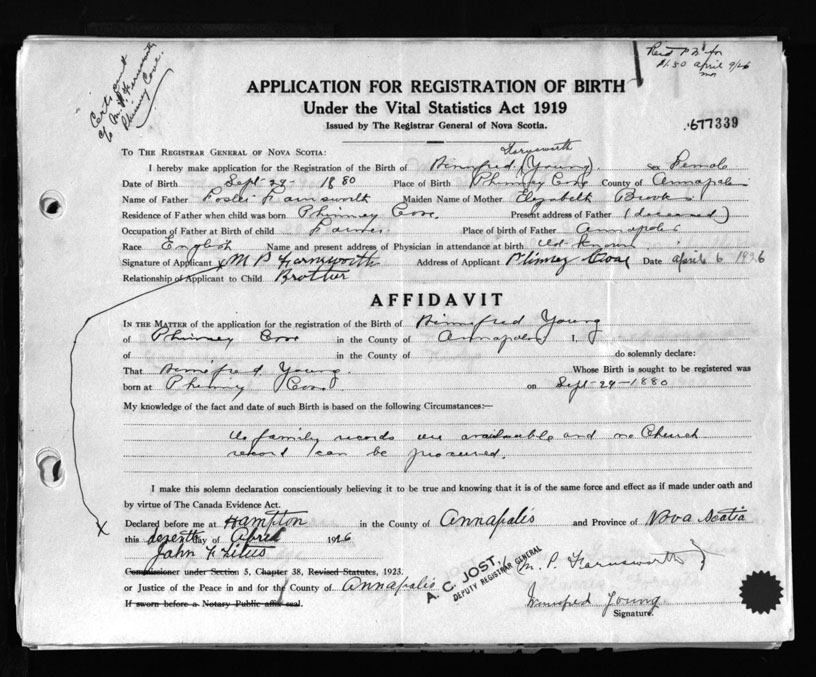 Certs sent
Phinney Cove.
April 9/26
APPLICATION FOR REGISTRATION OF BIRTH
Under the Vital Statistics Act 1919
Issued by The Registrar General of Nova Scotia.
677339
TO THE REGISTRAR GENERAL OF NOVA SCOTIA:
Farnsworth
I hereby make application for the Registration of the Birth of Winnifred (Young) Sex Female
Date of Birth Sept-29-1880 Place of Birth Phinney Cove County of Annapolis
Name of Father Farnsworth Maiden Name of Mother Elizabeth Brooks
Residence of Father when child was born Phinney Cove. Present address of Father (deceased)
Occupation of Father at Birth of child Farmer. Place of birth of Father Annapolis
Race English Name and present address of Physician in attendance at birth not known
Signature of Applicant x M P Farnsworth Address of Applicant Phinney Cove Date April 6 1926
Relationship of Applicant to Child Brother
AFFIDAVIT
IN THE MATTER of the application for the registration of the Birth of Winnifred Young
of Phinney Cove in the County of Annapolis I,
of in the County of do solemnly declare:
That Winnifred Young. Whose Birth is sought to be registered was
born at Phinney Cove on Sept-29-1880
My knowledge of the fact and date of such Birth is based on the following Circumstances:—
No family records are available and no Church
record can be procured.
I make this solemn declaration conscientiously believing it to be true and knowing that it is of the same force and effect as if made under oath and
by virtue of The Canada Evidence Act.
x Declared before me at Hampton in the County of Annapolis and Province of Nova Scotia
this day of April 1926
John F Titus
Commissioner under Section 5, Chapter 38, Revised Statutes, 1923.
or Justice of the Peace in and for the County of Annapolis
If sworn before a Notary Public affix seal.
A. C. JOST,
DEPUTY REGISTRAR GENERAL
M. P. Farnsworth
Winnifred Young.
Signature.